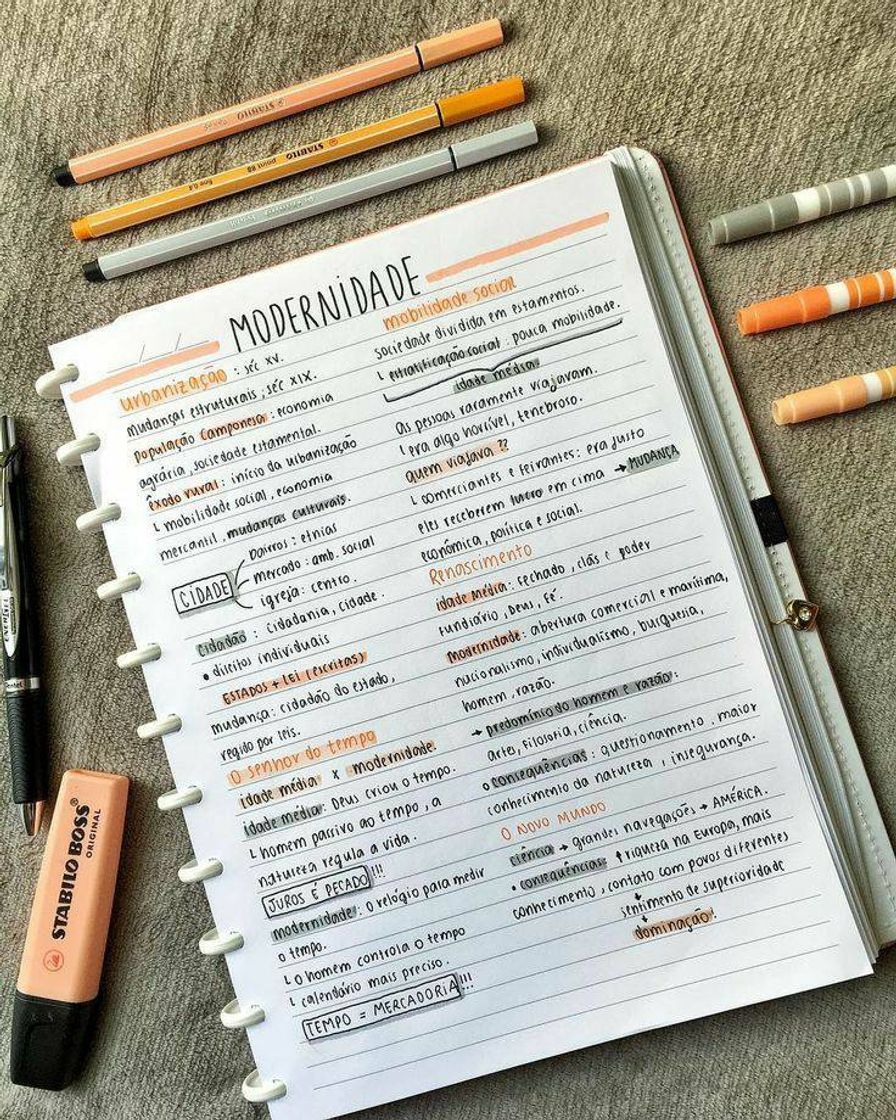 STABILO
STABILO point 88 fine 0.4
MODERNIDADE
urbanização : séc XV.
mudanças estruturais ; séc XIX.
População Camponesa : economia
agrária, sociedade estamental.
êxodo rural : início da urbanização
└ mobilidade social, economia
mercantil, mudanças culturais.
CIDADE
bairros : etnias
mercado : amb. social
igreja : centro.
cidadão : cidadania, cidade.
• direitos individuais
ESTADOS + LEI (escritas)
mudança : cidadão do estado,
regido por leis.
O senhor do tempo
idade média x modernidade.
idade média : Deus criou o tempo.
└ homem passivo ao tempo, a
natureza regula a vida.
JUROS É PECADO!!!
modernidade : o relógio para medir
o tempo.
└ o homem controla o tempo
└ calendário mais preciso.
TEMPO = MERCADORIA!!!
mobilidade social
sociedade dividida em estamentos.
└ estratificação social : pouca mobilidade.
idade média
As pessoas raramente viajavam.
└ era algo horrível, tenebroso.
quem viajava ??
└ comerciantes e feirantes : era justo
eles receberem lucro em cima → MUDANÇA
econômica, política e social.
Renascimento
idade média : fechado, clãs e poder
fundiário, Deus, fé.
Modernidade : abertura comercial e marítima,
nacionalismo, individualismo, burguesia,
homem, razão.
→ predomínio do homem e razão :
artes, filosofia, ciência.
o consequências : questionamento, maior
conhecimento da natureza, insegurança.
O NOVO MUNDO
ciência → grandes navegações → AMÉRICA.
• consequências : ↑ riqueza na Europa, mais
conhecimento, contato com povos diferentes
↓
sentimento de superioridade
↓
dominação!
STABILO BOSS®
ORIGINAL
Pentel